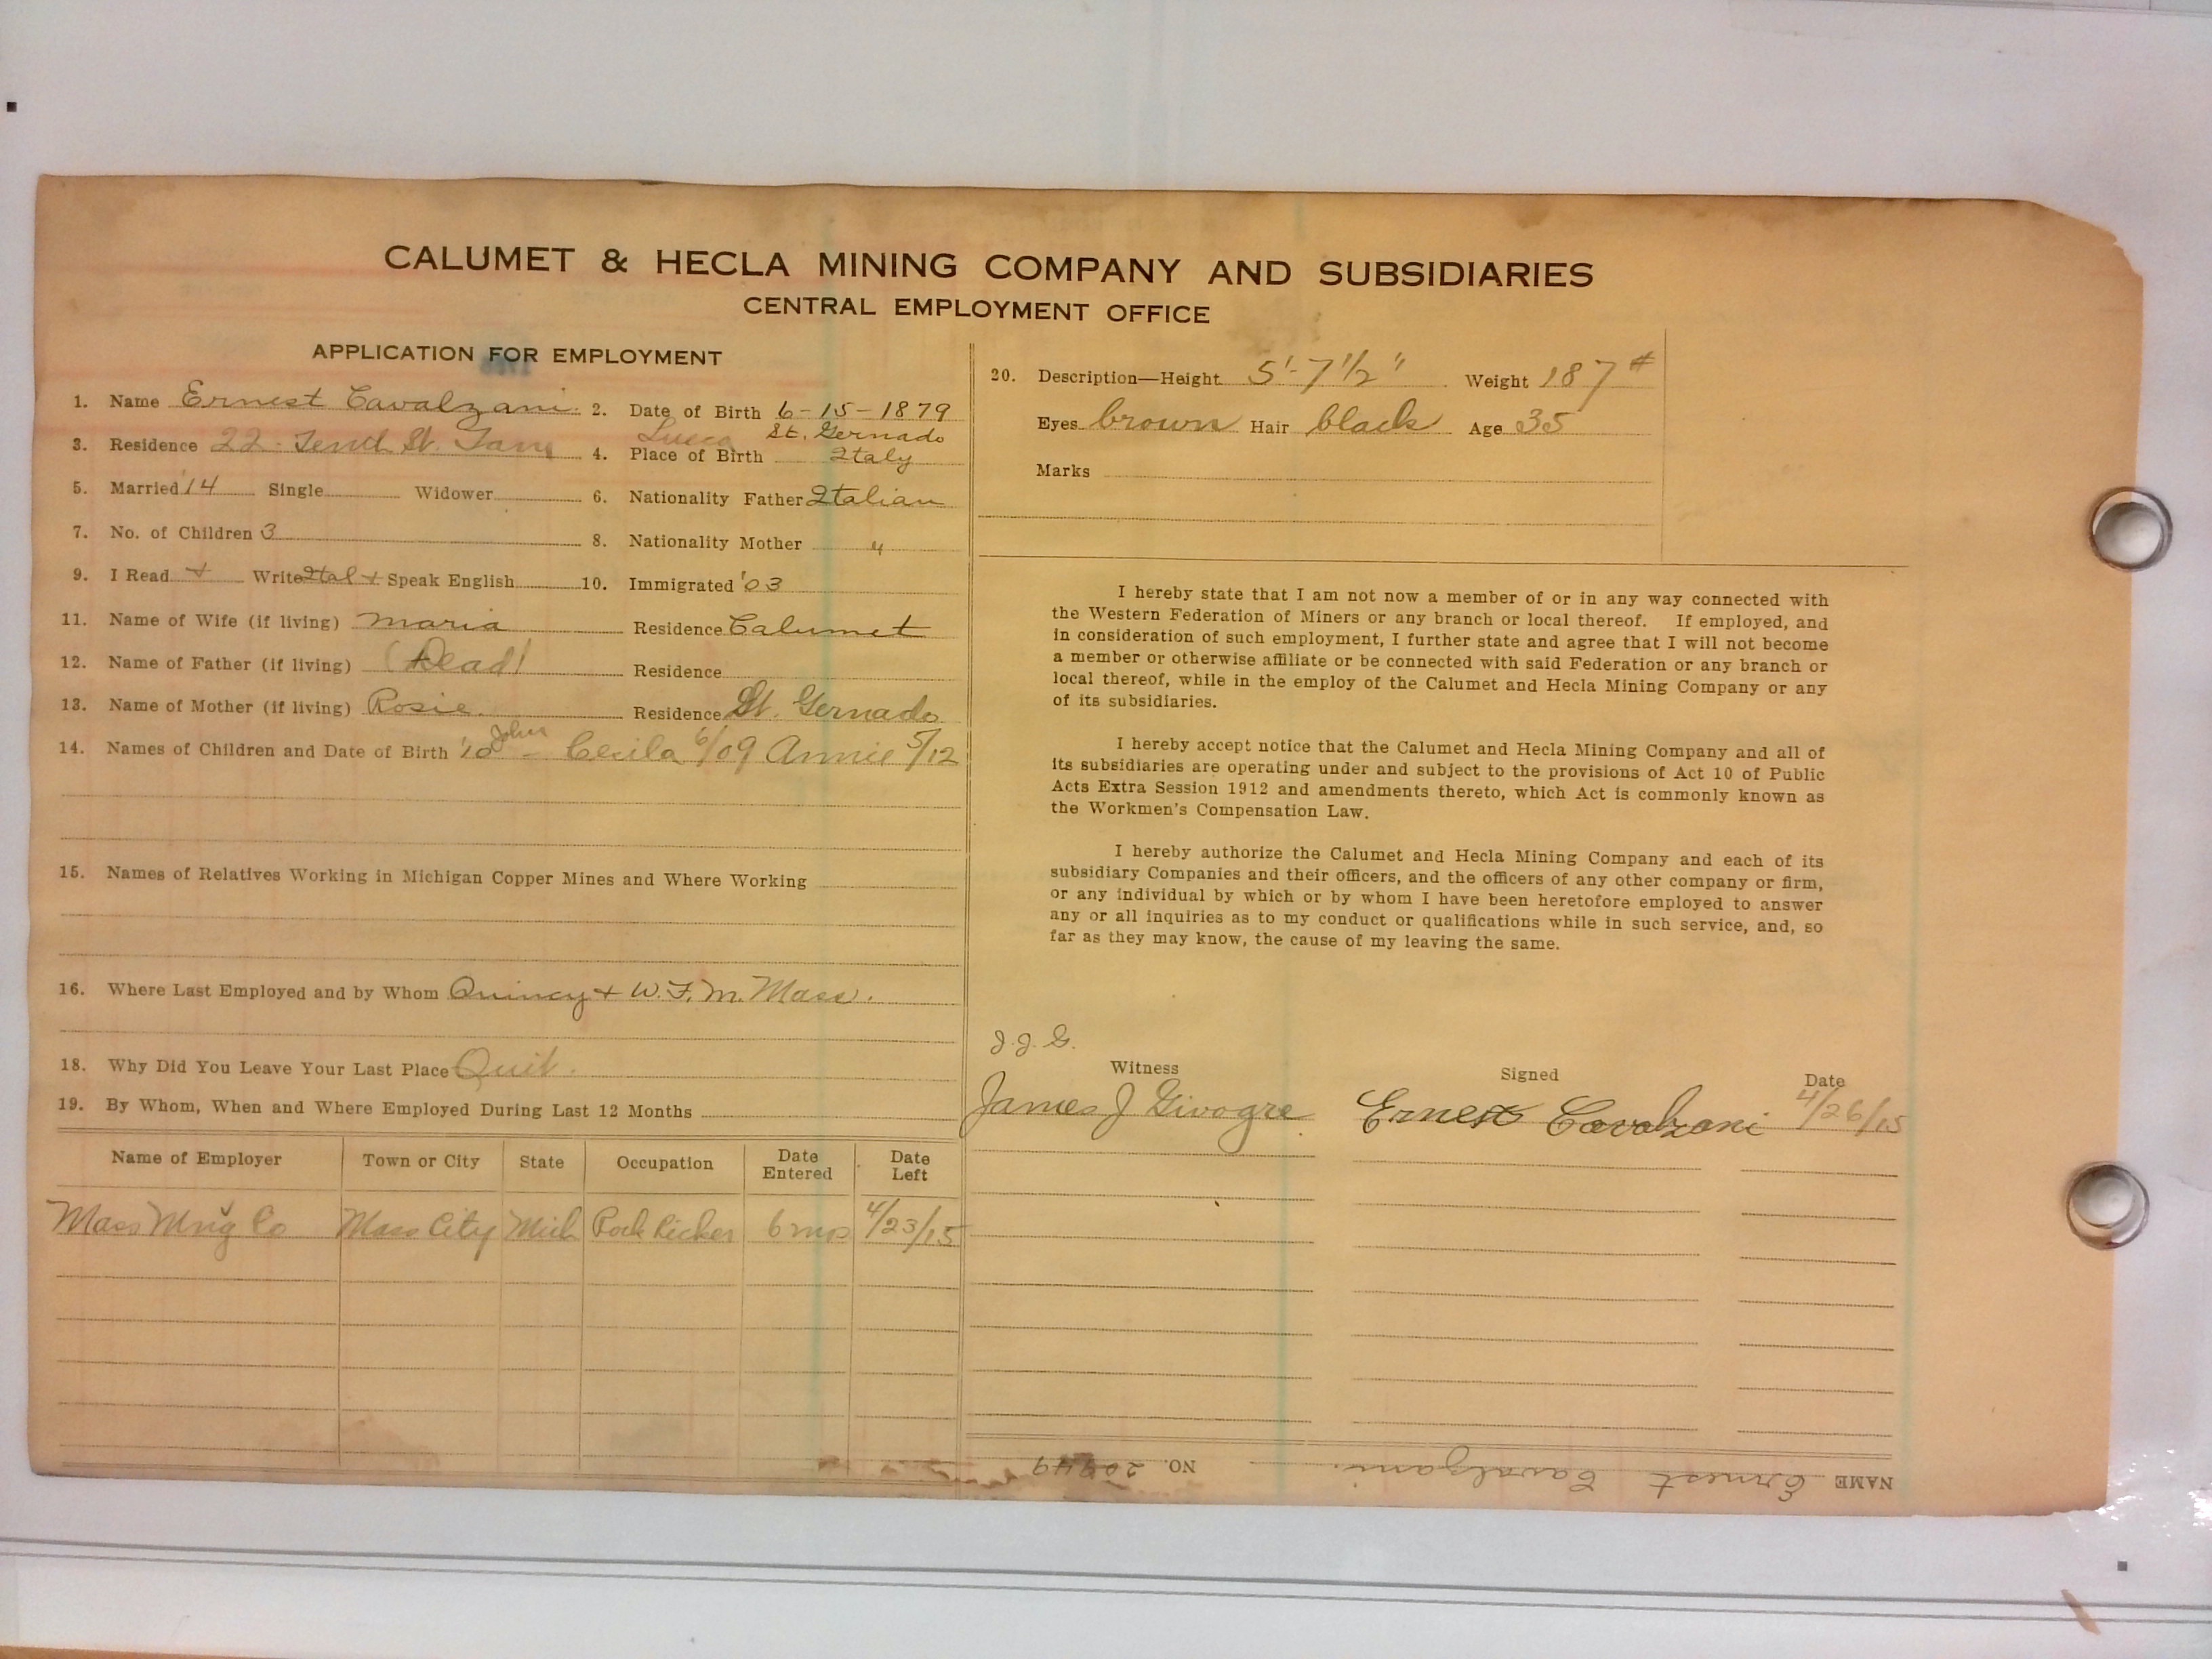 CALUMET & HECLA MINING COMPANY AND SUBSIDIARIES
CENTRAL EMPLOYMENT OFFICE
APPLICATION FOR EMPLOYMENT
1. Name Ernest Cavalzani. 2. Date of Birth 6-15-1879
Lucca St. Gernado
3. Residence 22 St. 4. Place of Birth Italy
5. Married '14 Single Widower 6. Nationality Father Italian
7. No. of Children 3 8. Nationality Mother "
9. I Read + Write Ital + Speak English 10. Immigrated '03
11. Name of Wife (if living) Maria Residence Calumet
12. Name of Father (if living) (Dead) Residence
13. Name of Mother (if living) Rosie. Residence St. Gernado
14. Names of Children and Date of Birth '10 John - Cecila 6/09 Annie 5/12
15. Names of Relatives Working in Michigan Copper Mines and Where Working
16. Where Last Employed and by Whom Quincy + W.F.M. Mass.
18. Why Did You Leave Your Last Place Quit.
19. By Whom, When and Where Employed During Last 12 Months
Name of Employer Town or City State Occupation Date Entered Date Left
Mass Mng Co Mass City Mich Rock Picker 6 mos 4/23/15
20. Description—Height 5'-7 1/2" Weight 187 #
Eyes brown Hair black Age 35
Marks
I hereby state that I am not now a member of or in any way connected with
the Western Federation of Miners or any branch or local thereof. If employed, and
in consideration of such employment, I further state and agree that I will not become
a member or otherwise affiliate or be connected with said Federation or any branch or
local thereof, while in the employ of the Calumet and Hecla Mining Company or any
of its subsidiaries.
I hereby accept notice that the Calumet and Hecla Mining Company and all of
its subsidiaries are operating under and subject to the provisions of Act 10 of Public
Acts Extra Session 1912 and amendments thereto, which Act is commonly known as
the Workmen's Compensation Law.
I hereby authorize the Calumet and Hecla Mining Company and each of its
subsidiary Companies and their officers, and the officers of any other company or firm,
or any individual by which or by whom I have been heretofore employed to answer
any or all inquiries as to my conduct or qualifications while in such service, and, so
far as they may know, the cause of my leaving the same.
J.J.G.
Witness Signed Date
James J Givogre Ernest Cavalzani 4/26/15
NAME Ernest Cavalzani. NO.